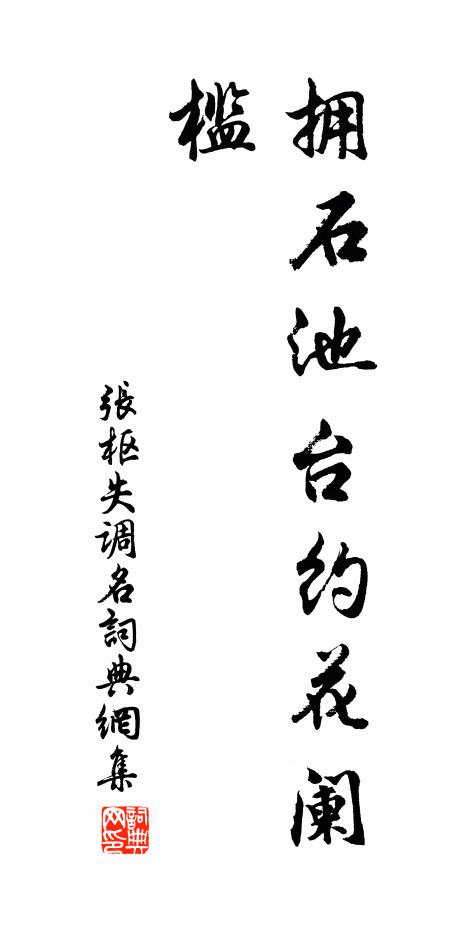 拥石池台约花阑
槛
張枢失调名詞典網集
詞典网印